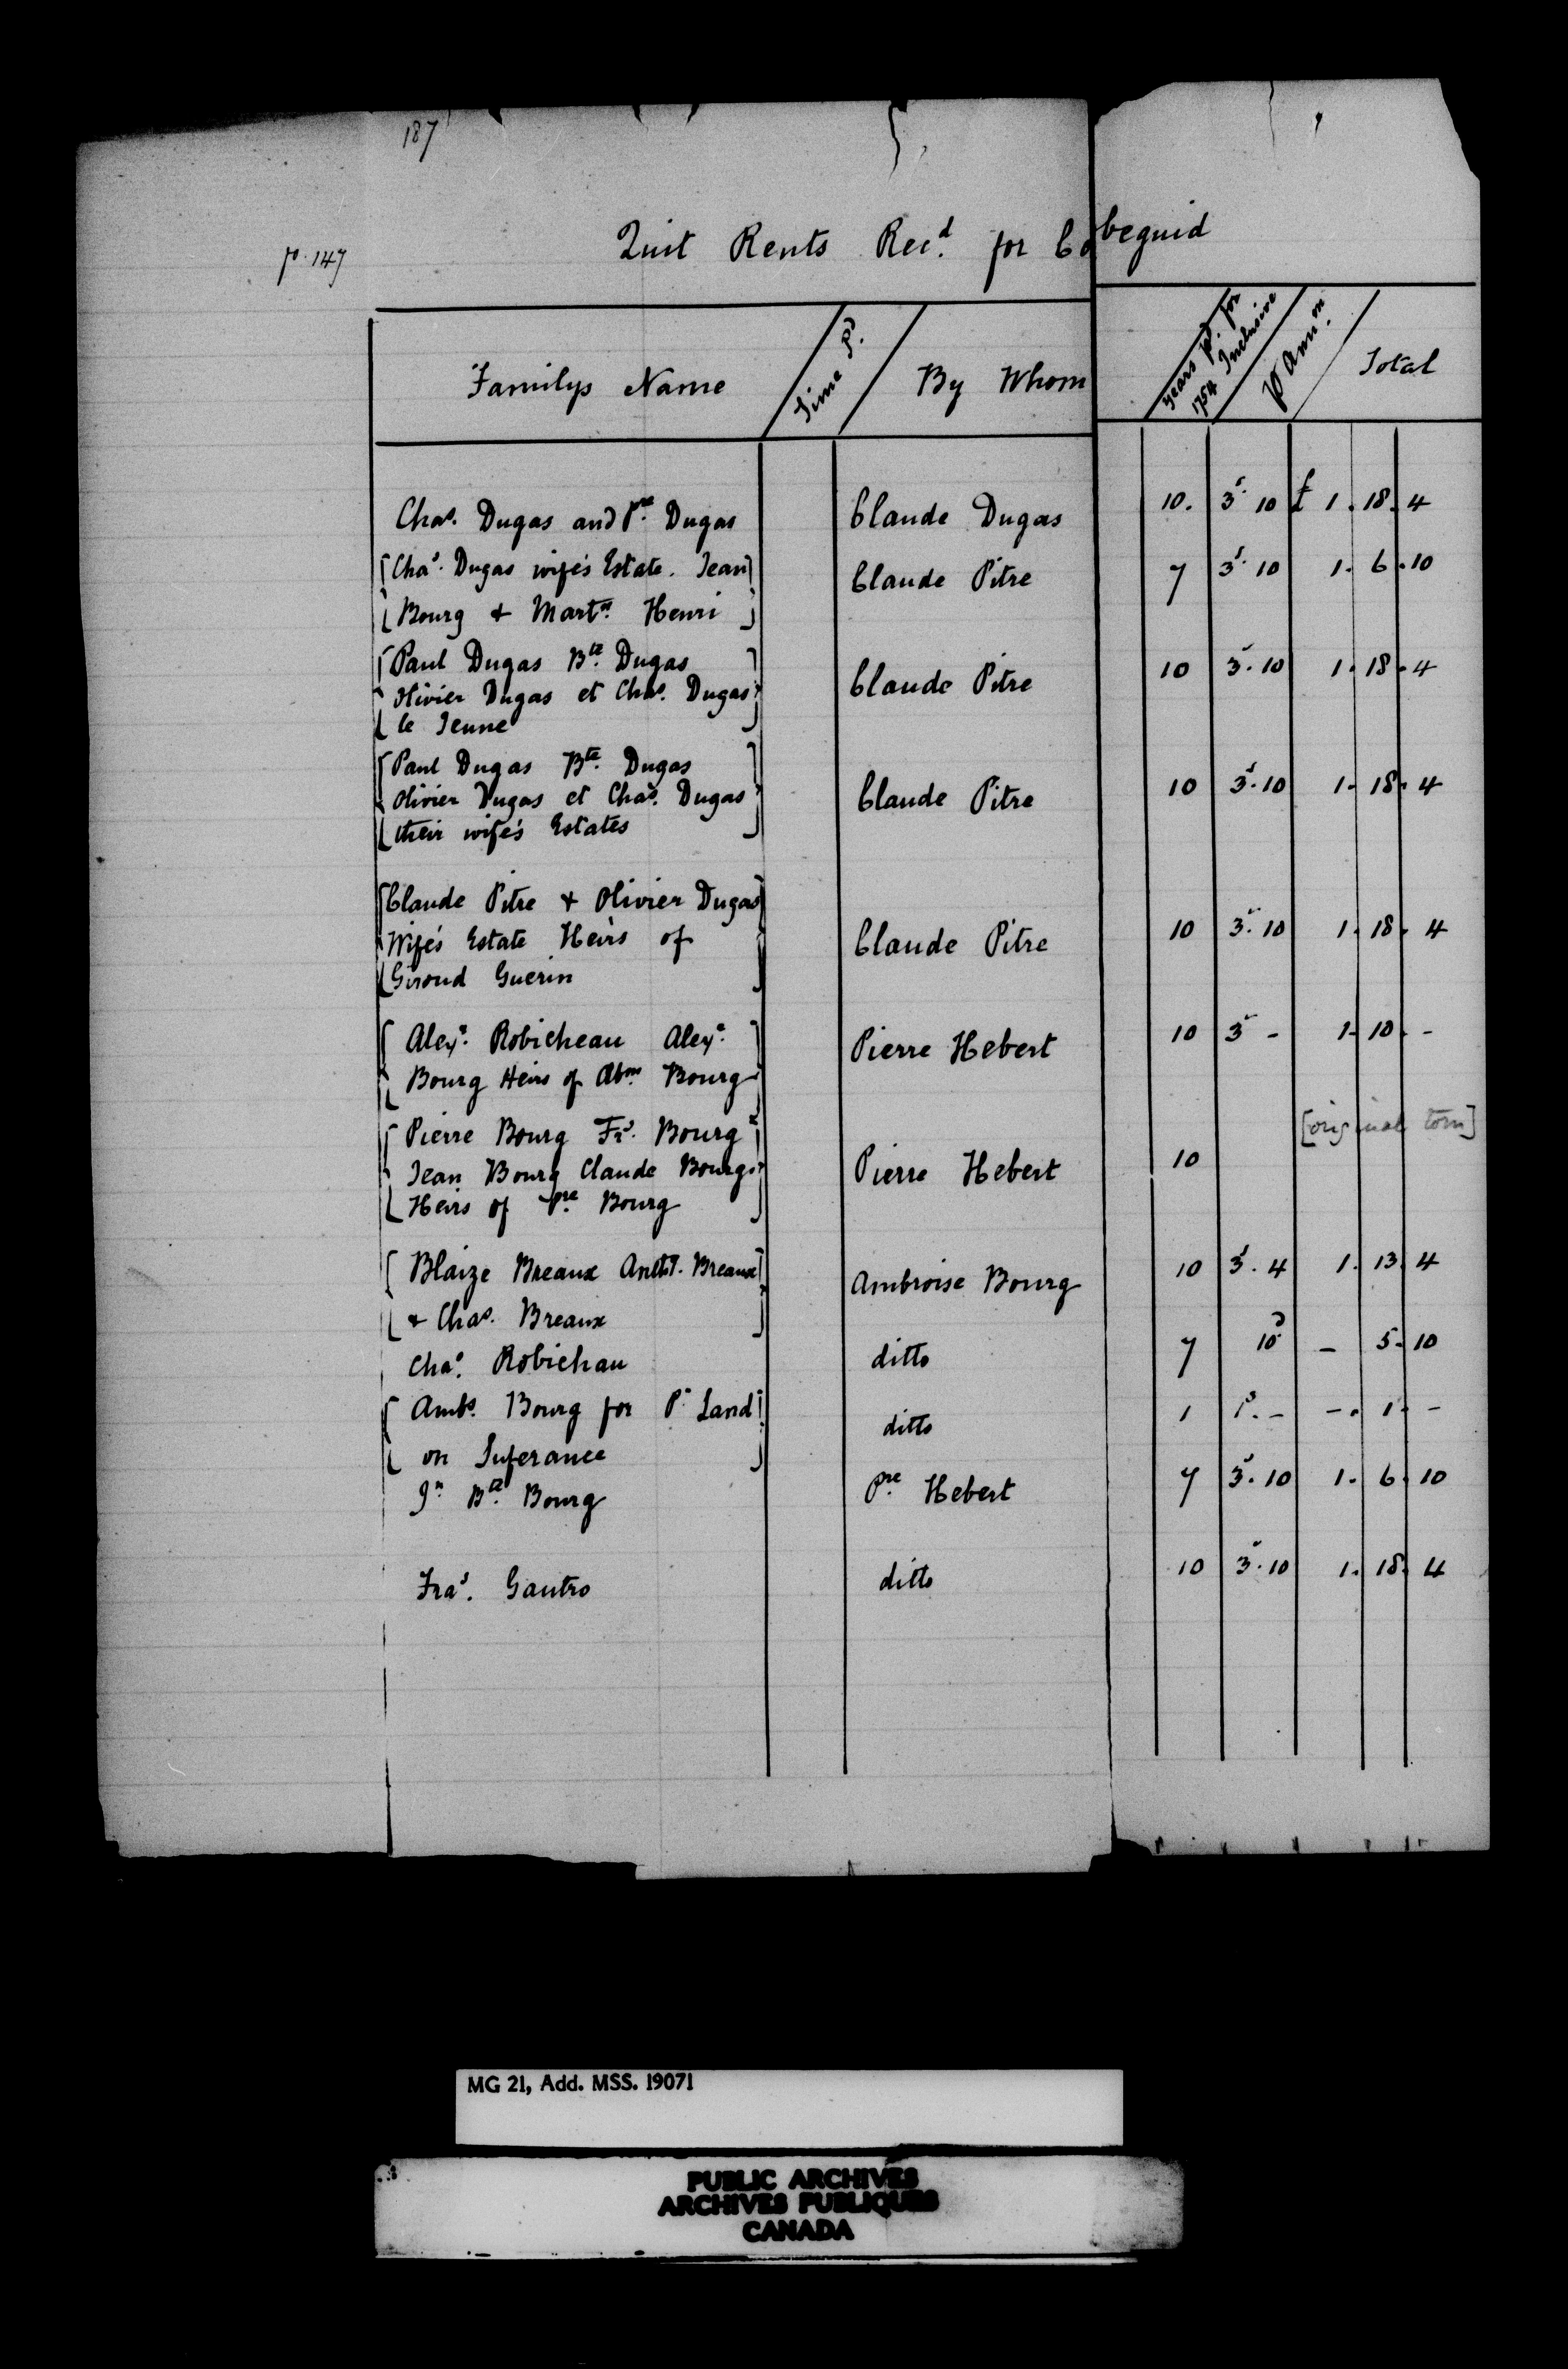 187
p. 147
Quit Rents Recd. for Cobequid
Familys Name | Time Pd. | By Whom | years pd. for 1754 Inclusive | p Annm. | Total
Chas. Dugas and Pre. Dugas | Claude Dugas | 10. | 3s. 10 | £ 1. 18. 4
Chas. Dugas wife's Estate. Jean | Claude Pitre | 7 | 3s. 10 | 1. 6. 10
Bourg + Martn. Henri
Paul Dugas Bte. Dugas | Claude Pitre | 10 | 3s. 10 | 1. 18. 4
Olivier Dugas et Chas. Dugas
le Jeune
Paul Dugas Bte. Dugas | Claude Pitre | 10 | 3s. 10 | 1. 18. 4
Olivier Dugas et Chas. Dugas
their wife's Estates
Claude Pitre + Olivier Dugas
Wife's Estate Heirs of | Claude Pitre | 10 | 3s. 10 | 1. 18. 4
Giroud Guerin
Alexr. Robicheau Alexr. | Pierre Hebert | 10 | 3s - | 1. 10. -
Bourg Heirs of Abm. Bourg
[original torn]
Pierre Bourg Frs. Bourg
Jean Bourg Claude Bourg | Pierre Hebert | 10
Heirs of Pre. Bourg
Blaize Breaux Breaux | Ambroise Bourg | 10 | 3s. 4 | 1. 13. 4
+ Chas. Breaux
Chas. Robichau | ditto | 7 | 10d. | - 5. 10
Ambs. Bourg for Pt Land | ditto | 1 | 1s. - | -. 1. -
on Suferance
Jn Bte. Bourg | Pre. Hebert | 7 | 3s. 10 | 1. 6. 10
Fras. Gautro | ditto | 10 | 3s. 10 | 1. 18. 4
MG 21, Add. MSS. 19071
PUBLIC ARCHIVES
ARCHIVES PUBLIQUES
CANADA